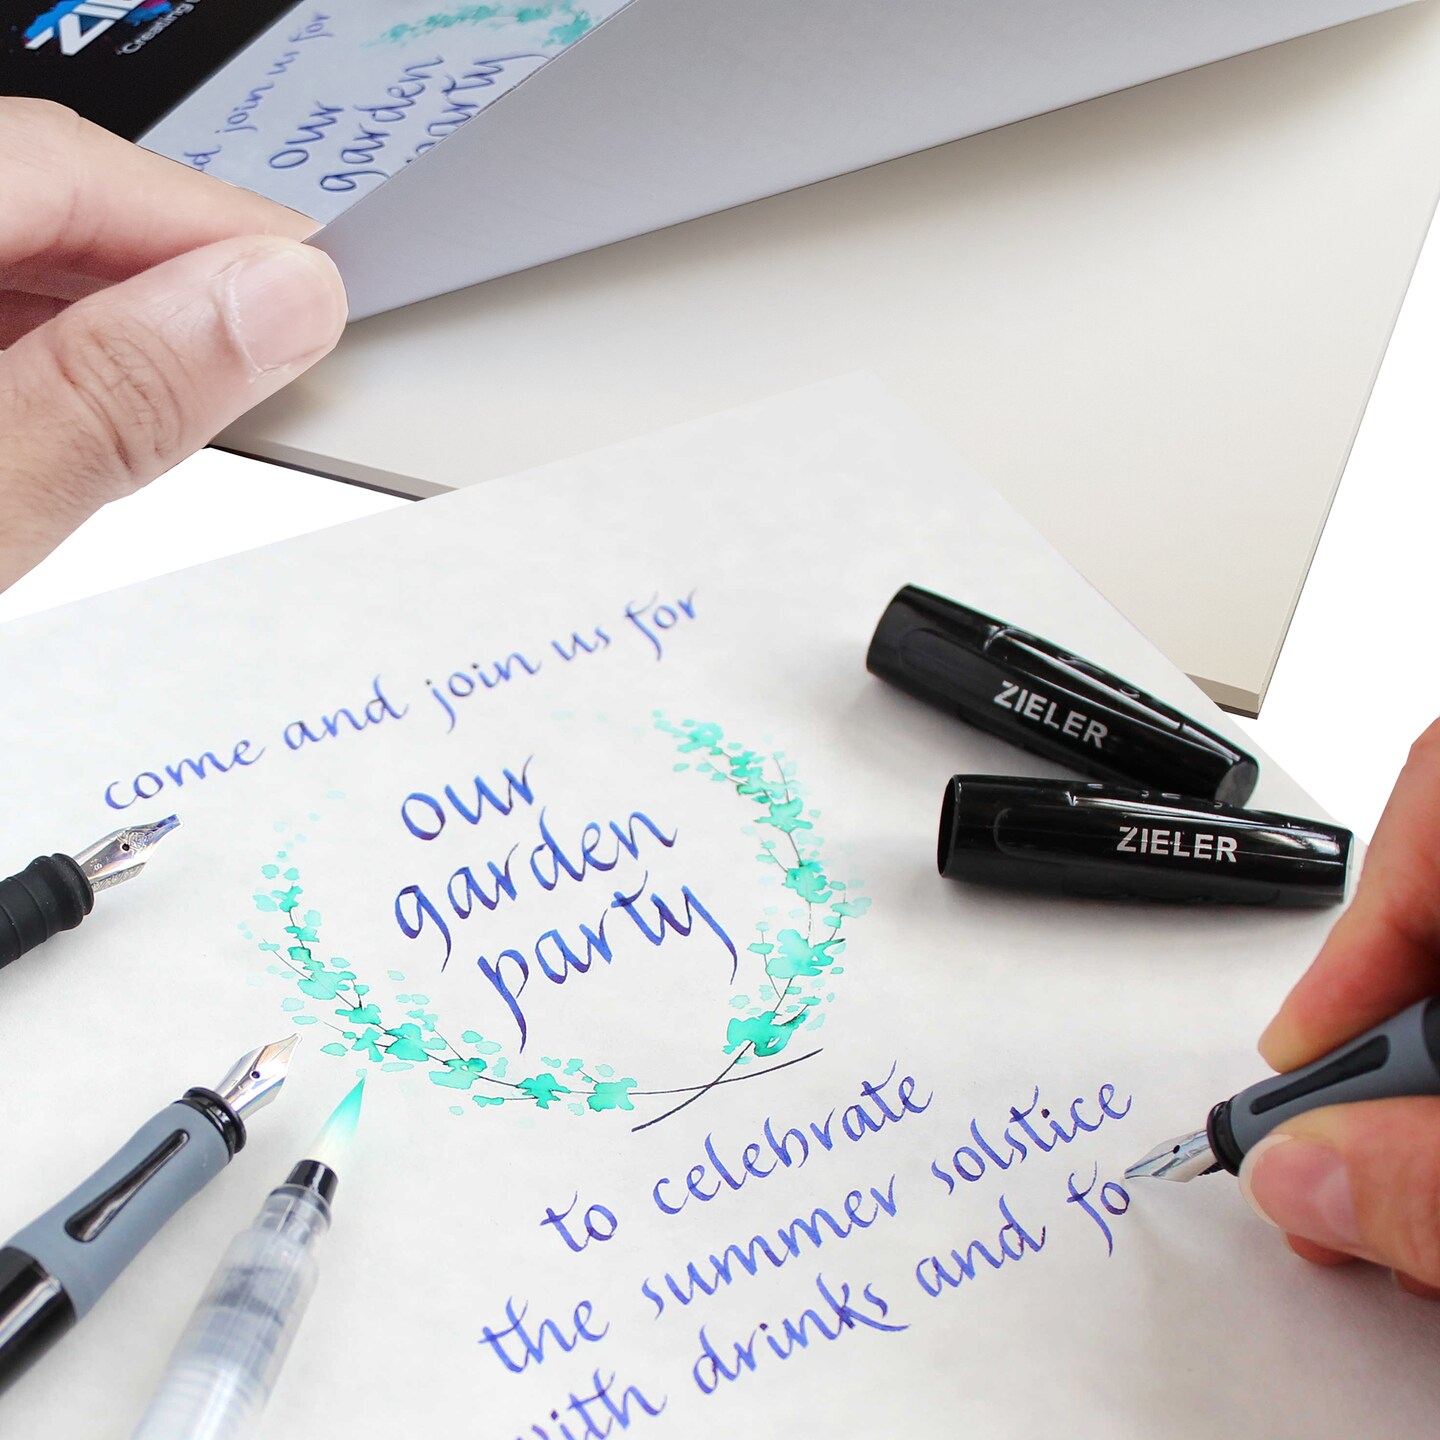 join us for
our
garden
party
come and join us for
our
garden
party
ZIELER
ZIELER
to celebrate
the summer solstice
with drinks and fo